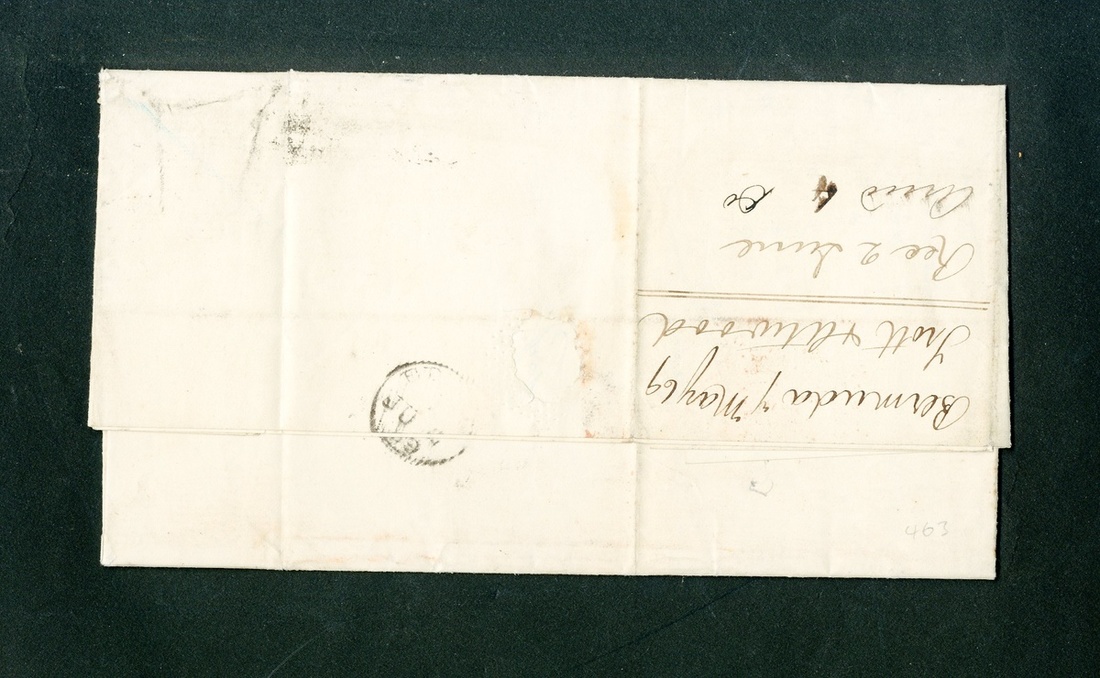 Bermuda 7 May 69
Trott & Atwood
Rec 2 June
Ansd 4 Do
463